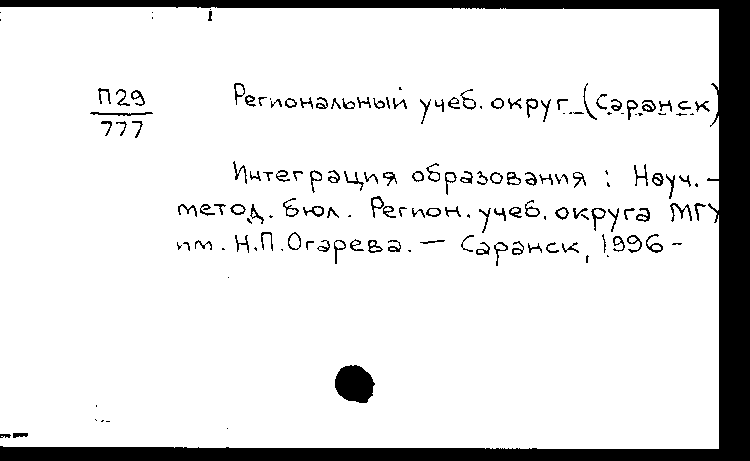 П29
777
Региональный учеб. округ (Саранск)
Интеграция образования : Науч.-
метод. бюл. Регион. учеб. округа МГУ
им. Н.П.Огарева. — Саранск, 1996 -